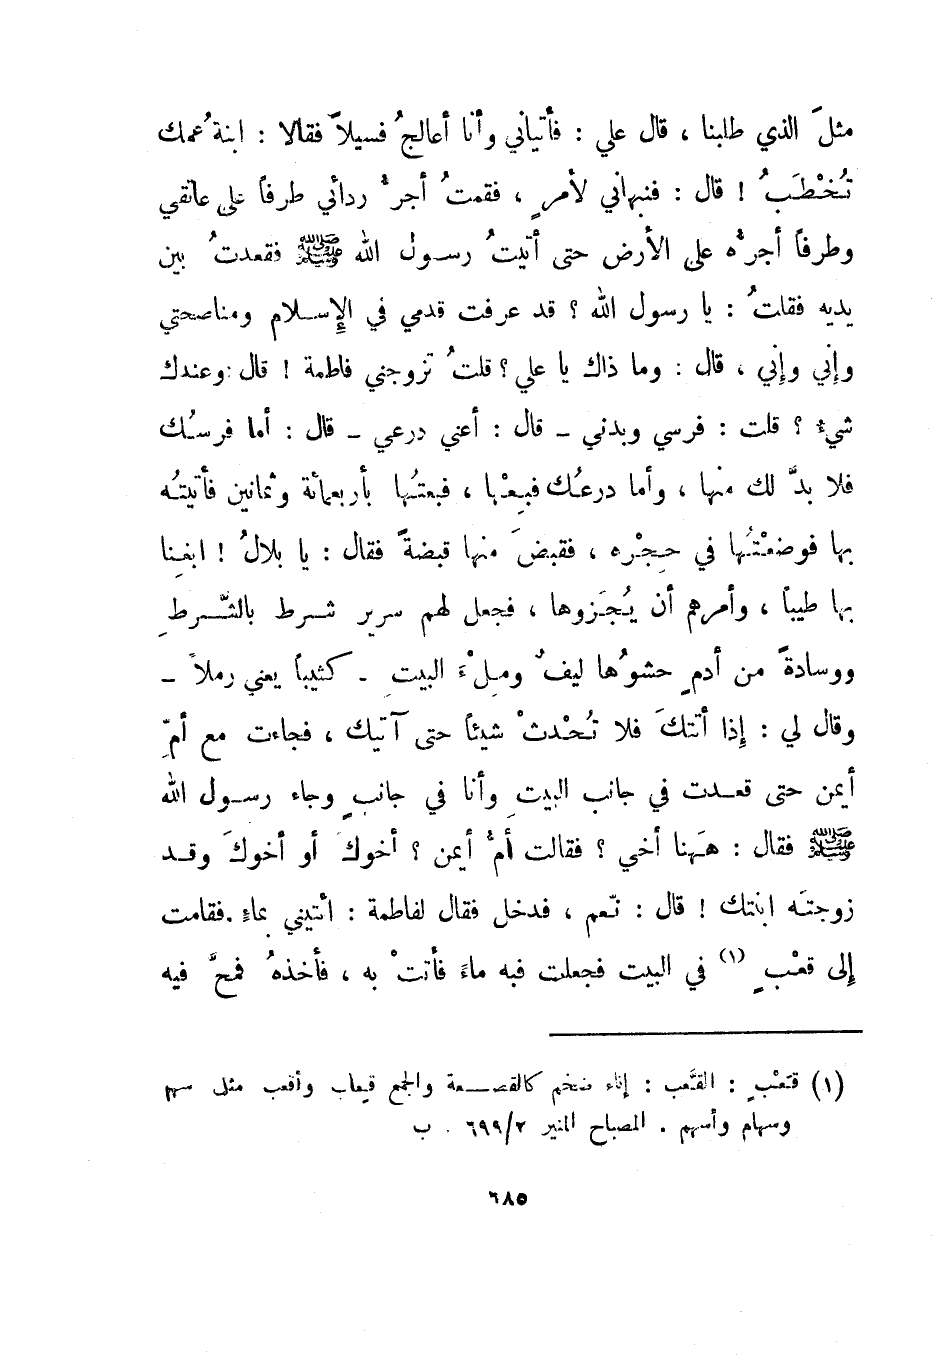 مثلَ الذي طلبنا ، قال علي : فأتياني وأنا أعالجُ فسيلاً فقالا : ابنةُ عمك
تُخْطَبُ ! قال : فنبهاني لأمرٍ ، فقمتُ أجرُّ ردائي طرفاً على عاتقي
وطرفاً أجرُّه على الأرض حتى أتيتُ رسول الله ﷺ فقعدتُ بين
يديه فقلتُ : يا رسول الله ؟ قد عرفت قدمي في الإسلام ومناصحتي
وإني وإني ، قال : وما ذاك يا علي ؟ قلتُ تزوجني فاطمة ! قال : وعندك
شيءٌ ؟ قلت : فرسي وبدني ـ قال : أعني درعي ـ قال : أما فرسُك
فلا بدَّ لك منها ، وأما درعُك فبِعْها ، فبعتُها بأربعمائة وثمانين فأتيتُه
بها فوضعْتُها في حِجْره ، فقبضَ منها قبضةً فقال : يا بلالُ ! ابغِنا
بها طيباً ، وأمرهم أن يُجَزوها ، فجعل لهم سرير شرط بالشَّرطِ
ووسادةً من أدمٍ حشوُها ليفٌ ومِلْءَ البيتِ ـ كثيباً يعني رملاً ـ
وقال لي : إذا أتتكَ فلا تُحْدثْ شيئاً حتى آتيك ، فجاءت مع أمِّ
أيمن حتى قعدت في جانب البيتِ وأنا في جانبٍ وجاء رسول الله
ﷺ فقال : هَهنا أخي ؟ فقالت أمُّ أيمن ؟ أخوكَ أو أخوكَ وقد
زوجتَه ابنتك ! قال : نَعم ، فدخل فقال لفاطمة : أئتيني بماءٍ . فقامت
إلى قعْبٍ (١) في البيت فجعلت فيه ماءً فأتتْ به ، فأخذهُ فمجَّ فيه
(١) قَعْبٍ : القَعب : إناء ضخم كالقصعة والجمع قِعاب وأقعب مثل سهم
وسهام وأسهم . المصباح المنير ٦٩٩/٢ . ب
٦٨٥